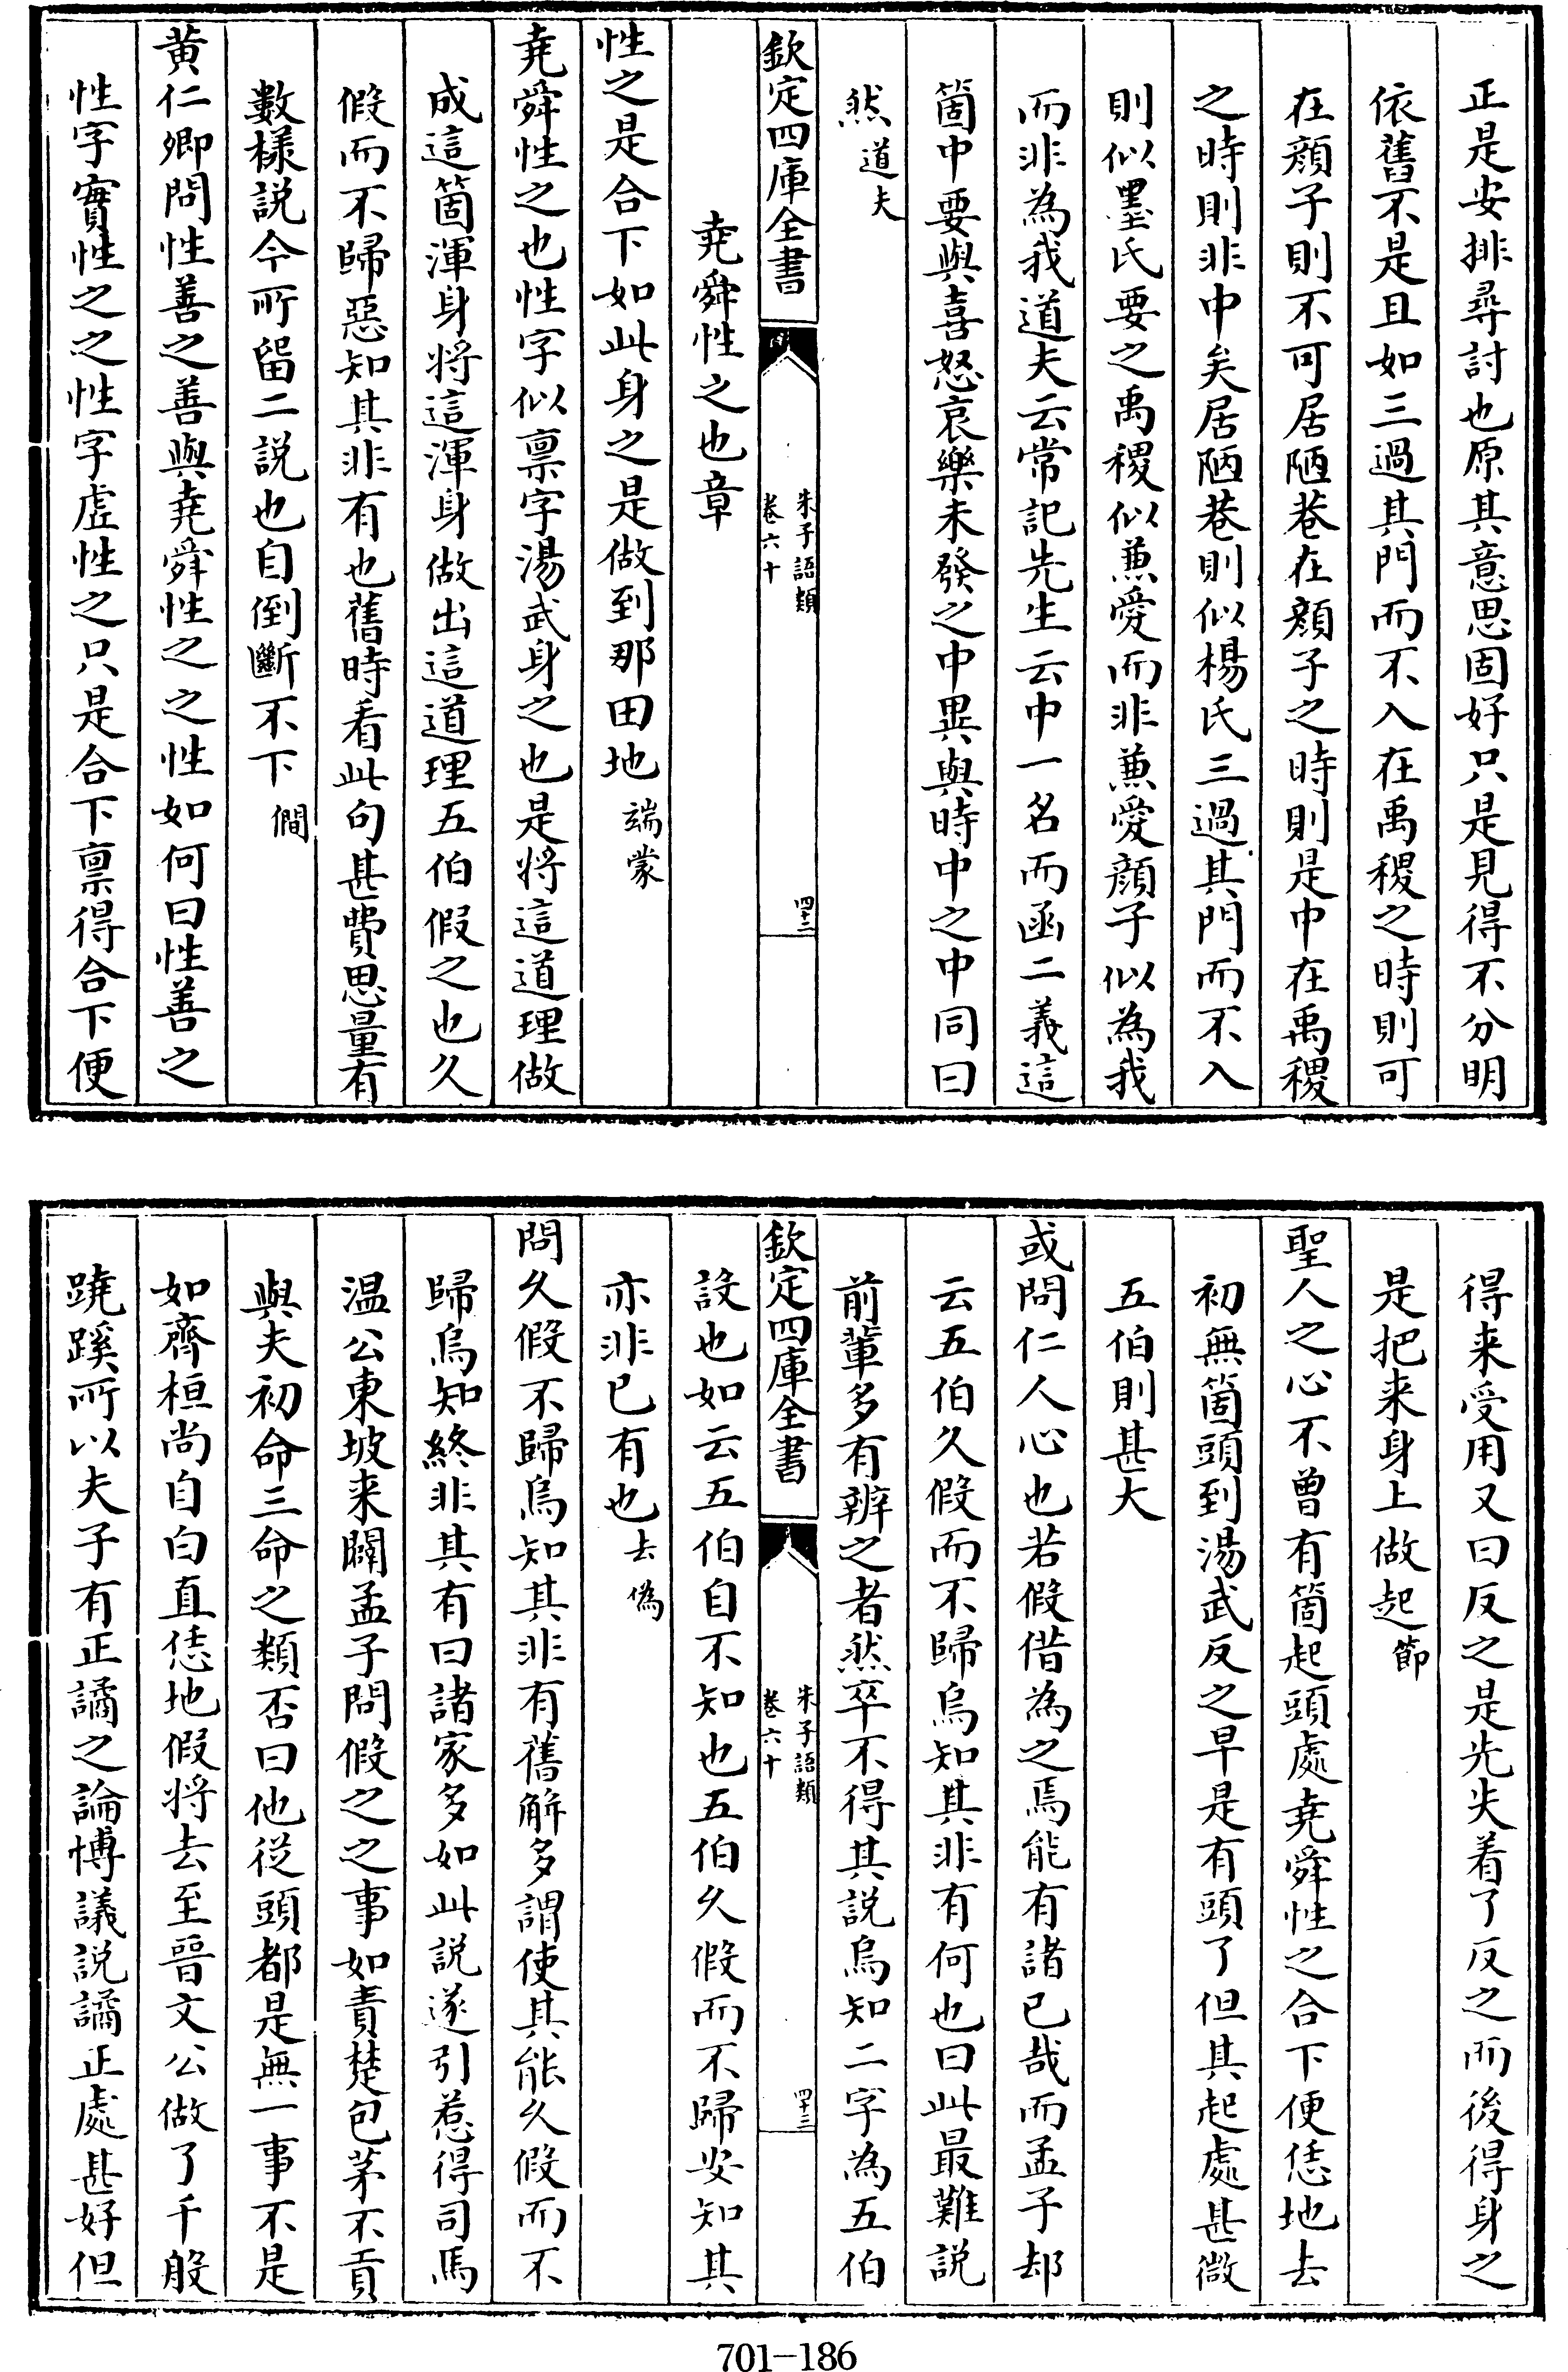 正是安排尋討也原其意思固好只是見得不分明
依舊不是且如三過其門而不入在禹稷之時則可
在顔子則不可居陋巷在顔子之時則是中在禹稷
之時則非中矣居陋巷則似楊氏三過其門而不入
則似墨氏要之禹稷似兼愛而非兼愛顔子似為我
而非為我道夫云常記先生云中一名而函二義這
箇中要與喜怒哀樂未發之中異與時中之中同曰
然道夫
欽定四庫全書
朱子語類
卷六十
四十二
堯舜性之也章
性之是合下如此身之是做到那田地端蒙
堯舜性之也性字似禀字湯武身之也是将這道理做
成這箇渾身将這渾身做出這道理五伯假之也久
假而不歸惡知其非有也舊時看此句甚費思量有
數樣説今所留二説也自倒斷不下僩
黄仁卿問性善之善與堯舜性之之性如何曰性善之
性字實性之之性字虛性之只是合下禀得合下便
得来受用又曰反之是先失着了反之而後得身之
是把来身上做起節
聖人之心不曾有箇起頭處堯舜性之合下便恁地去
初無箇頭到湯武反之早是有頭了但其起處甚微
五伯則甚大
或問仁人心也若假借為之焉能有諸已哉而孟子却
云五伯久假而不歸烏知其非有何也曰此最難説
前輩多有辨之者然卒不得其説烏知二字為五伯
欽定四庫全書
朱子語類
卷六十
四十三
設也如云五伯自不知也五伯久假而不歸安知其
亦非已有也去偽
問久假不歸烏知其非有舊解多謂使其能久假而不
歸烏知終非其有曰諸家多如此説遂引惹得司馬
温公東坡来闢孟子問假之之事如責楚包茅不貢
與夫初命三命之類否曰他從頭都是無一事不是
如齊桓尚自白直恁地假将去至晉文公做了千般
蹺蹊所以夫子有正譎之論博議説譎正處甚好但
701-186